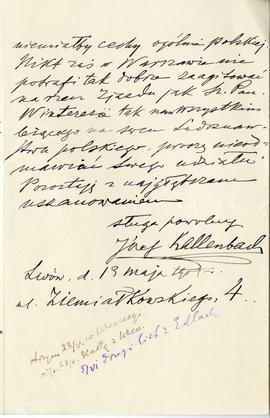 niemiałby cechy ogólnie polskiej.
Nikt zaś w Warszawie nie
potrafi tak dobrze zaagitować
na rzecz Zjazdu jak Sz. Pan.
W interesie tak nam wszystkim
leżącego na sercu Ludoznaw-
stwa polskiego, proszę nieod-
mawiać swego udziału.
Pozostaję z najgłębszem
uszanowaniem
sługa powolny
Józef Kallenbach
Lwów, d. 13 maja
ul. Ziemiałkowskiego, 4.
22/V. w Wenecji
Kartą z
5/VI drugi list z Edlach